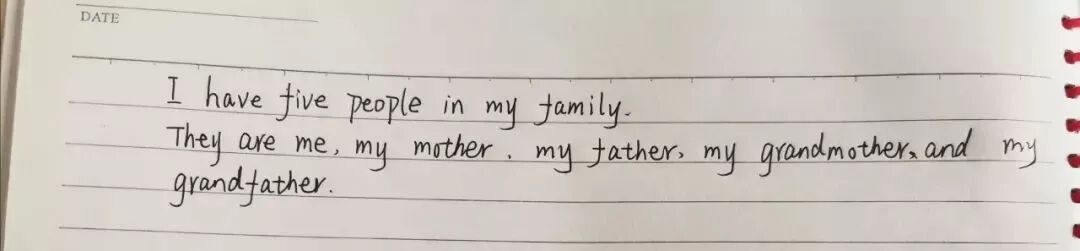 DATE
I have five people in my family.
They are me, my mother, my father, my grandmother, and my
grandfather.